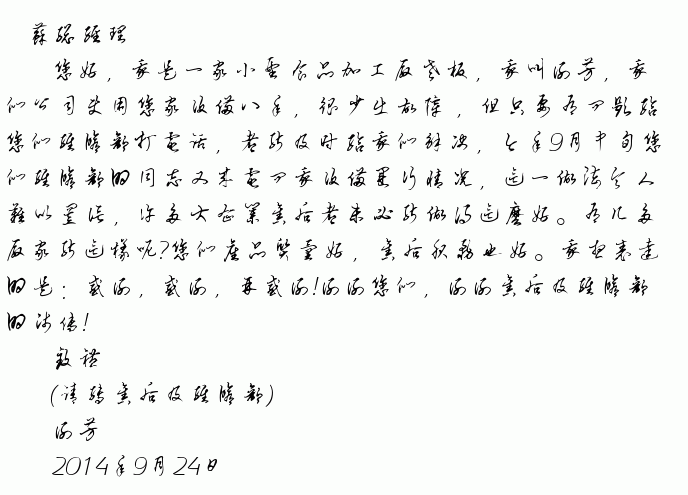 薛总经理
您好，我是一家小型食品加工厂老板，我叫谢芳，我
们公司使用您家设备八年，很少出故障，但只要有问题给
您们经销部打电话，都能及时给我们解决，今年9月中旬您
们经销部的同志又来电问我设备运行情况，这一做法令人
难以置信，许多大企业售后都未必能做得这麽好。有几多
厂家能这样呢?您们产品质量好，售后服务也好。我想表达
的是：感谢，感谢，再感谢!谢谢您们，谢谢售后及经销部
的沙伟!
致礼
(请转售后及经销部)
谢芳
2014年9月24日